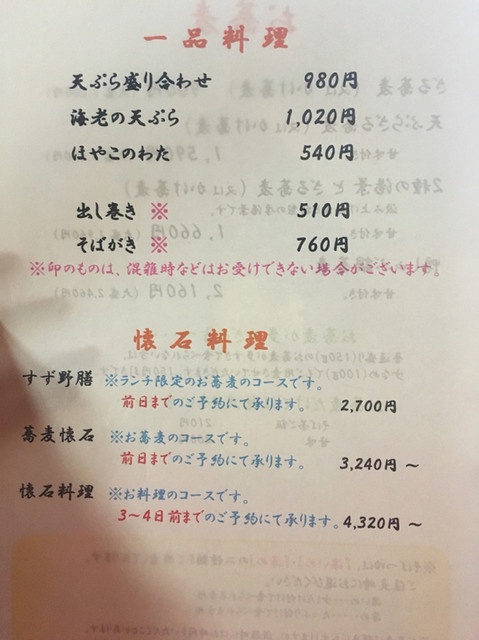 一品料理
天ぷら盛り合わせ 980円
海老の天ぷら 1,020円
ほやこのわた 540円
出し巻き ※ 510円
そばがき ※ 760円
※印のものは、混雑時などはお受けできない場合がございます。
懐石料理
すず野膳 ※ランチ限定のお蕎麦のコースです。
前日までのご予約にて承ります。 2,700円
蕎麦懐石 ※お蕎麦のコースです。
前日までのご予約にて承ります。 3,240円 ～
懐石料理 ※お料理のコースです。
3～4日前までのご予約にて承ります。 4,320円 ～